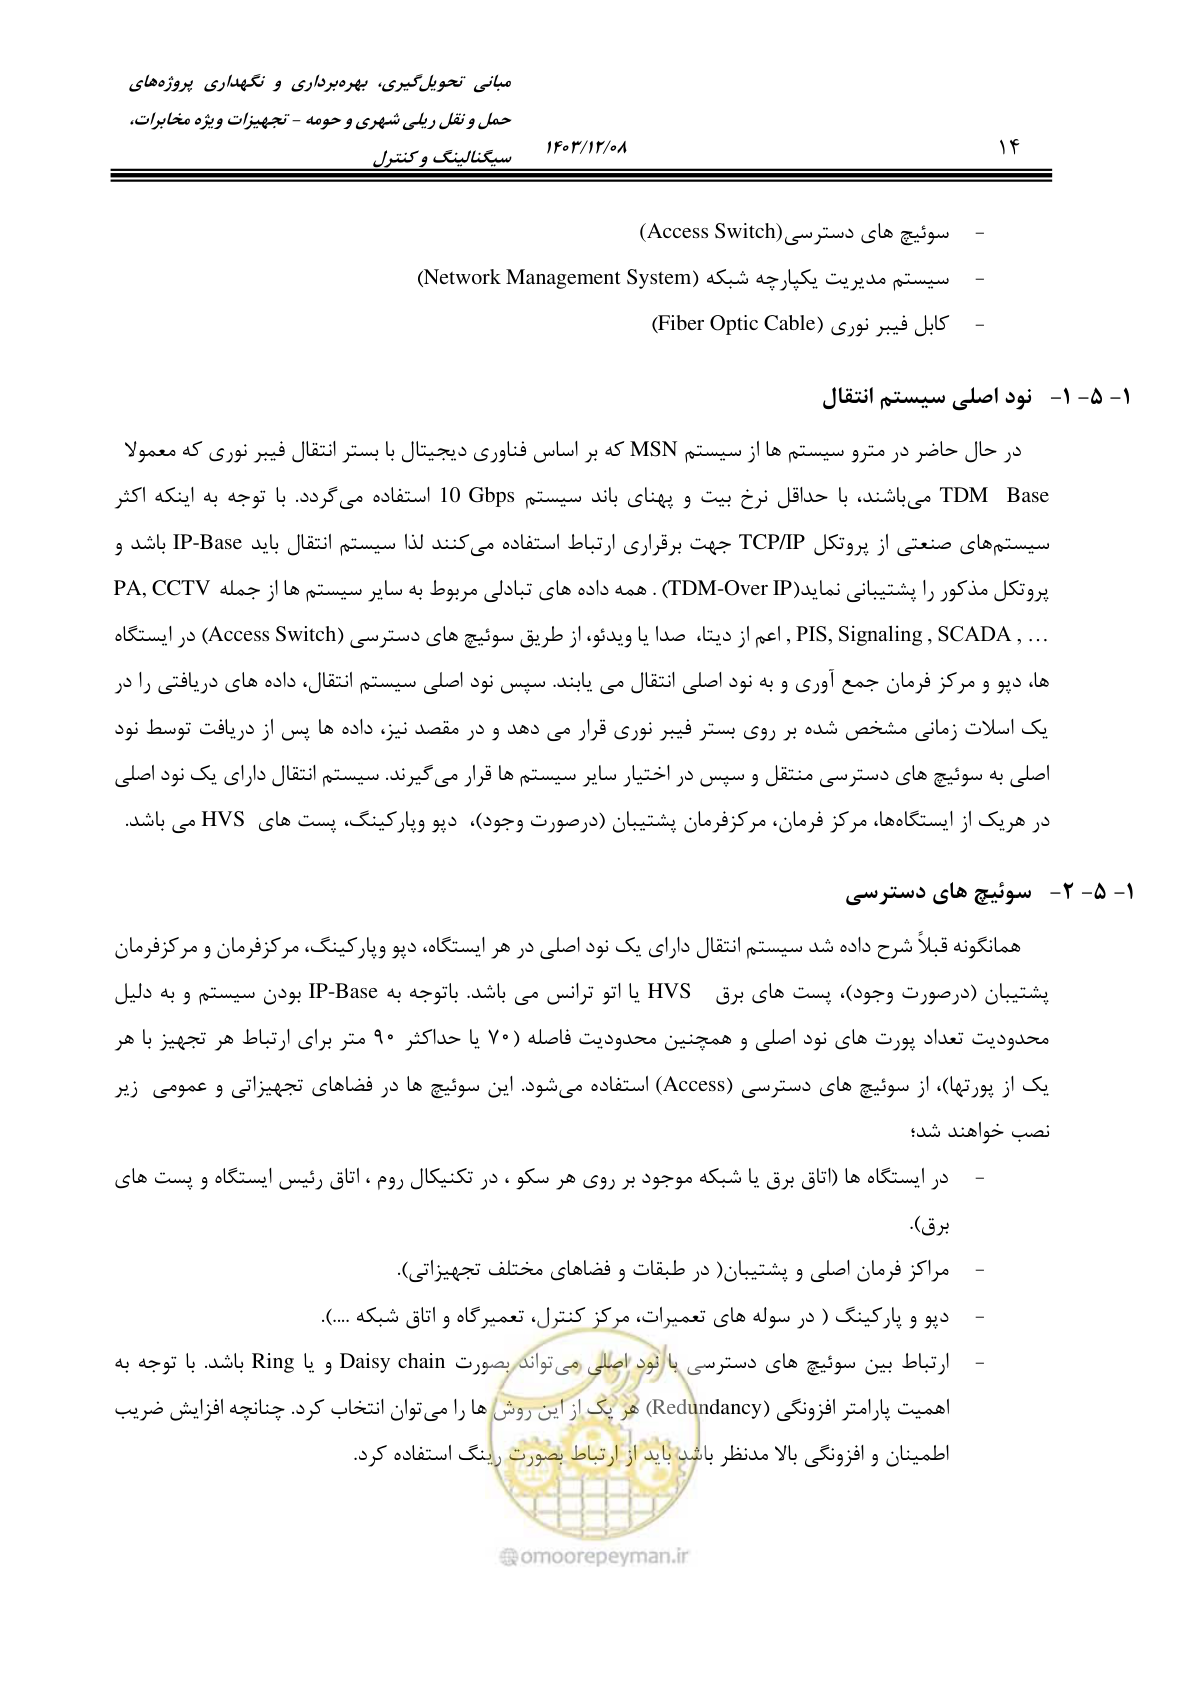 مبانی تحویل‌گیری، بهره‌برداری و نگهداری پروژه‌های
حمل و نقل ریلی شهری و حومه – تجهیزات ویژه مخابرات،
سیگنالینگ و کنترل
۱۴۰۳/۱۲/۰۸
۱۴
- سوئیچ های دسترسی(Access Switch)
- سیستم مدیریت یکپارچه شبکه (Network Management System)
- کابل فیبر نوری (Fiber Optic Cable)
۱- ۵- ۱- نود اصلی سیستم انتقال
در حال حاضر در مترو سیستم ها از سیستم MSN که بر اساس فناوری دیجیتال با بستر انتقال فیبر نوری که معمولا
TDM Base می‌باشند، با حداقل نرخ بیت و پهنای باند سیستم 10 Gbps استفاده می‌گردد. با توجه به اینکه اکثر
سیستم‌های صنعتی از پروتکل TCP/IP جهت برقراری ارتباط استفاده می‌کنند لذا سیستم انتقال باید IP-Base باشد و
پروتکل مذکور را پشتیبانی نماید(TDM-Over IP) . همه داده های تبادلی مربوط به سایر سیستم ها از جمله PA, CCTV
, PIS, Signaling , SCADA , … اعم از دیتا، صدا یا ویدئو، از طریق سوئیچ های دسترسی (Access Switch) در ایستگاه
ها، دپو و مرکز فرمان جمع آوری و به نود اصلی انتقال می یابند. سپس نود اصلی سیستم انتقال، داده های دریافتی را در
یک اسلات زمانی مشخص شده بر روی بستر فیبر نوری قرار می دهد و در مقصد نیز، داده ها پس از دریافت توسط نود
اصلی به سوئیچ های دسترسی منتقل و سپس در اختیار سایر سیستم ها قرار می‌گیرند. سیستم انتقال دارای یک نود اصلی
در هریک از ایستگاه‌ها، مرکز فرمان، مرکزفرمان پشتیبان (درصورت وجود)، دپو وپارکینگ، پست های HVS می باشد.
۱- ۵- ۲- سوئیچ های دسترسی
همانگونه قبلاً شرح داده شد سیستم انتقال دارای یک نود اصلی در هر ایستگاه، دپو وپارکینگ، مرکزفرمان و مرکزفرمان
پشتیبان (درصورت وجود)، پست های برق HVS یا اتو ترانس می باشد. باتوجه به IP-Base بودن سیستم و به دلیل
محدودیت تعداد پورت های نود اصلی و همچنین محدودیت فاصله (۷۰ یا حداکثر ۹۰ متر برای ارتباط هر تجهیز با هر
یک از پورتها)، از سوئیچ های دسترسی (Access) استفاده می‌شود. این سوئیچ ها در فضاهای تجهیزاتی و عمومی زیر
نصب خواهند شد؛
- در ایستگاه ها (اتاق برق یا شبکه موجود بر روی هر سکو ، در تکنیکال روم ، اتاق رئیس ایستگاه و پست های
برق).
- مراکز فرمان اصلی و پشتیبان( در طبقات و فضاهای مختلف تجهیزاتی).
- دپو و پارکینگ ( در سوله های تعمیرات، مرکز کنترل، تعمیرگاه و اتاق شبکه ....).
- ارتباط بین سوئیچ های دسترسی با نود اصلی می‌تواند بصورت Daisy chain و یا Ring باشد. با توجه به
اهمیت پارامتر افزونگی (Redundancy) هر یک از این روش ها را می‌توان انتخاب کرد. چنانچه افزایش ضریب
اطمینان و افزونگی بالا مدنظر باشد باید از ارتباط بصورت رینگ استفاده کرد.
امور پیمان
@omoorepeyman.ir